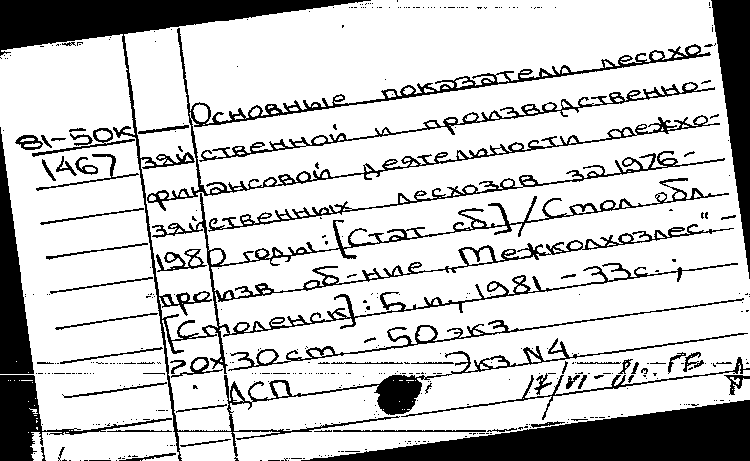 Основные показатели лесохо-
81-50к
зяйственной и производственно-
1467
финансовой деятельности межхо-
зяйственных лесхозов за 1976-
1980 годы: [Стат. сб.] / Смол. обл.
произв. об-ние „Межколхозлес". -
[Смоленск]: Б.и., 1981. - 33с.;
20х30см. - 50 экз.
ДСП. Экз. N4.
17/VI-81г. ГБ